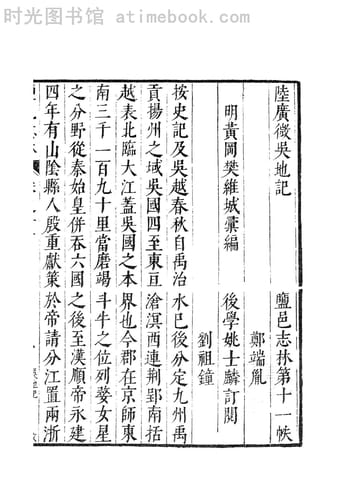 时光图书馆 - atimebook.com
陸廣微吳地記 鹽邑志林第十一帙
鄭端胤
明黃岡樊維城彙編 後學姚士麟訂閱
劉祖鐘
按史記及吳越春秋自禹治水已後分定九州禹
貢揚州之域吳國四至東亘滄溟西連荆郢南括
越表北臨大江蓋吳國之本界也今郡在京師東
南三千一百九十里當磨竭斗牛之位列婺女星
之分野從秦始皇併吞六國之後至漢順帝永建
四年有山陰縣人殷重獻策於帝請分江置兩浙